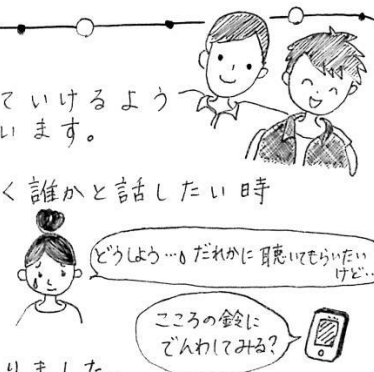 ていけるよう
います。
く誰かと話したい時
どうしよう…。だれかに聴いてもらいたい
けど…
こころの鈴に
でんわしてみる?
りました